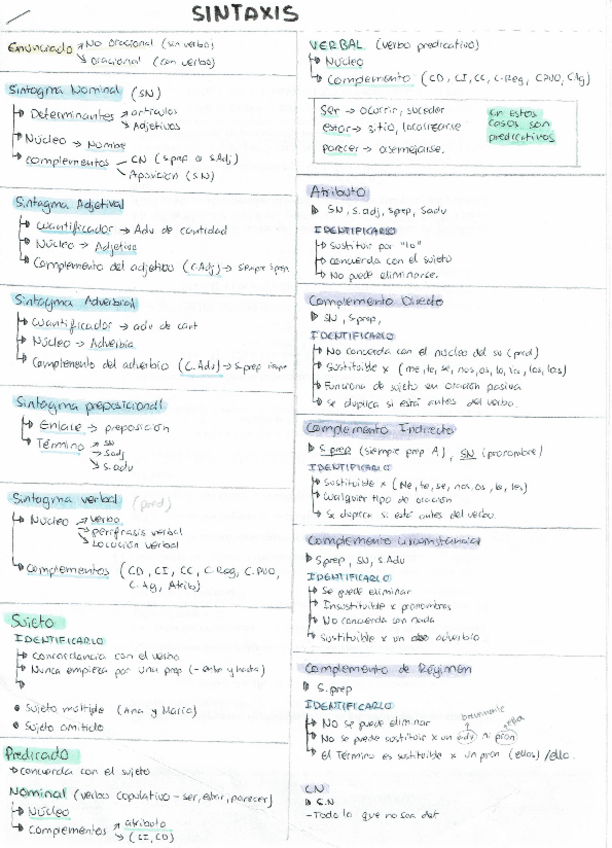 SINTAXIS
Enunciado → No oracional (sin verbo)
→ oracional (con verbo)
Sintagma Nominal (SN)
↳ Determinantes → artículos
→ Adjetivos
↳ Núcleo → Nombre
↳ complementos - CN (S.prep o S.Adj)
- Aposición (SN)
Sintagma Adjetival
↳ Cuantificador → Adv de cantidad
↳ Núcleo → Adjetivo
↳ Complemento del adjetivo (C.Adj) → siempre s.prep
Sintagma Adverbial
↳ Cuantificador → adv de cant
↳ Núcleo → Adverbio
↳ Complemento del adverbio (C.Adv) → s.prep
Sintagma preposicional
↳ Enlace → preposición
↳ Término → SN
→ S.adj
→ S.adv
Sintagma verbal (pred)
↳ Núcleo → verbo
→ perífrasis verbal
→ Locución verbal
↳ Complementos (CD, CI, CC, C.Reg, C.PVO,
C.Ag, Atrib)
Sujeto
IDENTIFICARLO
↳ Concordancia con el verbo
↳ Nunca empieza por una prep (- entre y hasta)
↳
• Sujeto múltiple (Ana y María)
• Sujeto omitido
Predicado
→ concuerda con el sujeto
Nominal (verbo copulativo - ser, estar, parecer)
↳ Núcleo
↳ Complementos → atributo
→ (CI, CD)
VERBAL (verbo predicativo)
↳ Núcleo
↳ Complemento (CD, CI, CC, C.Reg, CPVO, CAg)
Ser → ocurrir, suceder
estar → sitio, localizarse
parecer → asemejarse.
En estos
casos son
predicativos
Atributo
▷ SN, S.adj, Sprep, Sadv
IDENTIFICARLO
↳ Sustituir por "lo"
↳ concuerda con el sujeto
↳ No puede eliminarse.
Complemento Directo
▷ SN, S.prep,
IDENTIFICARLO
↳ No concuerda con el núcleo del sv (pred)
↳ Sustituible x (me, te, se, nos, os, lo, la, los, las)
↳ Funciona de sujeto en oración pasiva
↳ Se duplica si está antes del verbo.
Complemento Indirecto
▷ S.prep (siempre prep A), SN (pronombre)
IDENTIFICARLO
↳ Sustituible x (Me, te, se, nos, os, le, les)
↳ Cualquier tipo de oración
↳ Se duplica si está antes del verbo.
Complemento Circunstancial
▷ Sprep, SN, S.Adv
IDENTIFICARLO
↳ Se puede eliminar
↳ Insustituible x pronombres
↳ No concuerda con nada
↳ Sustituible x un adverbio
Complemento de Régimen
▷ S.prep
IDENTIFICARLO
↳ No se puede eliminar
↳ No se puede sustituir x un adv ni pron
↳ El Término es sustituible x un pron (ellos) /ello.
CN
▷ S.N
- Todo lo que no sea det